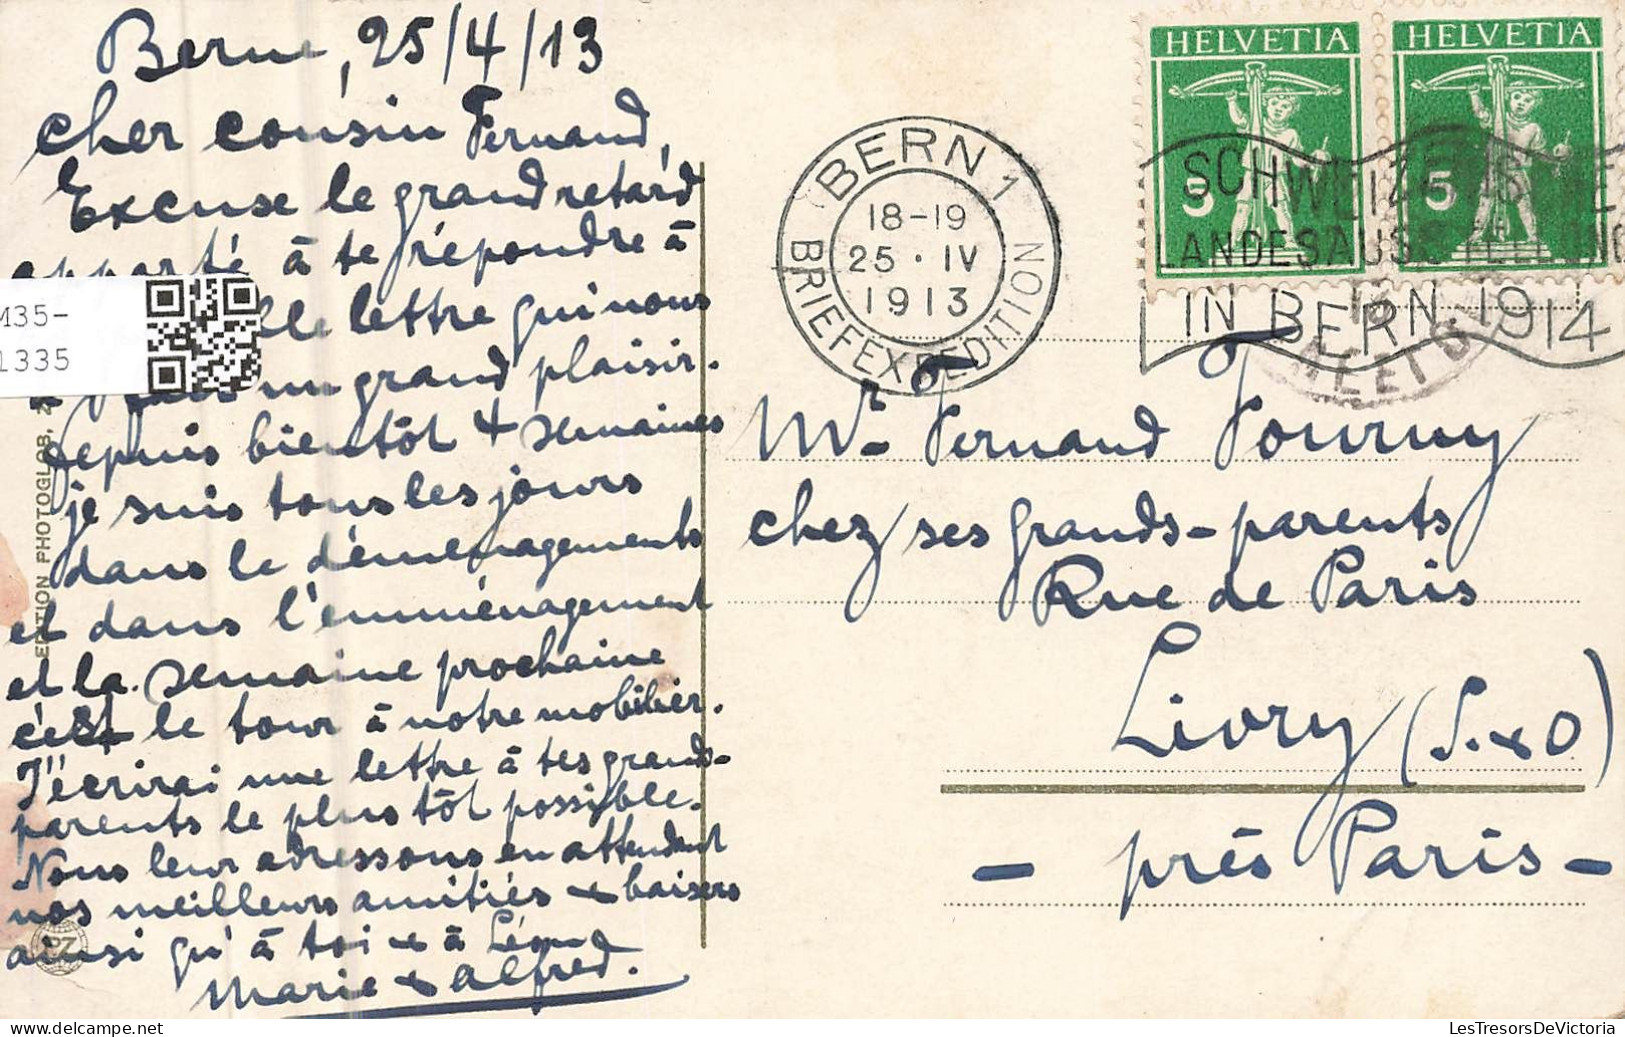 Berne, 25/4/13
cher cousin Fernand,
Excuse le grand retard
apporté à te répondre à
lle lettre qui nous
un grand plaisir.
Depuis bientôt 4 semaines
je suis tous les jours
dans le déménagements
et dans l'emménagement
et la semaine prochaine
c'est le tour à notre mobilier.
J'écrirai une lettre à tes grands-
parents le plus tôt possible.
Nous leur adressons en attendant
nos meilleurs amitiés & baisers
ainsi qu'à toi & à Léon
Marie & Alfred.
M35-
1335
EDITION PHOTOGLOB, Z
PZ
BERN 1
18-19
25·IV
1913
BRIEFEXPEDITION
HELVETIA
5
HELVETIA
5
SCHWEIZ
LANDESAUSSTELLUNG
IN BERN 1914
Mr. Fernand Fourny
chez ses grands-parents
Rue de Paris
Livry (S.&O)
- près Paris -
LesTresorsDeVictoria
LesTresorsDeVictoria.com